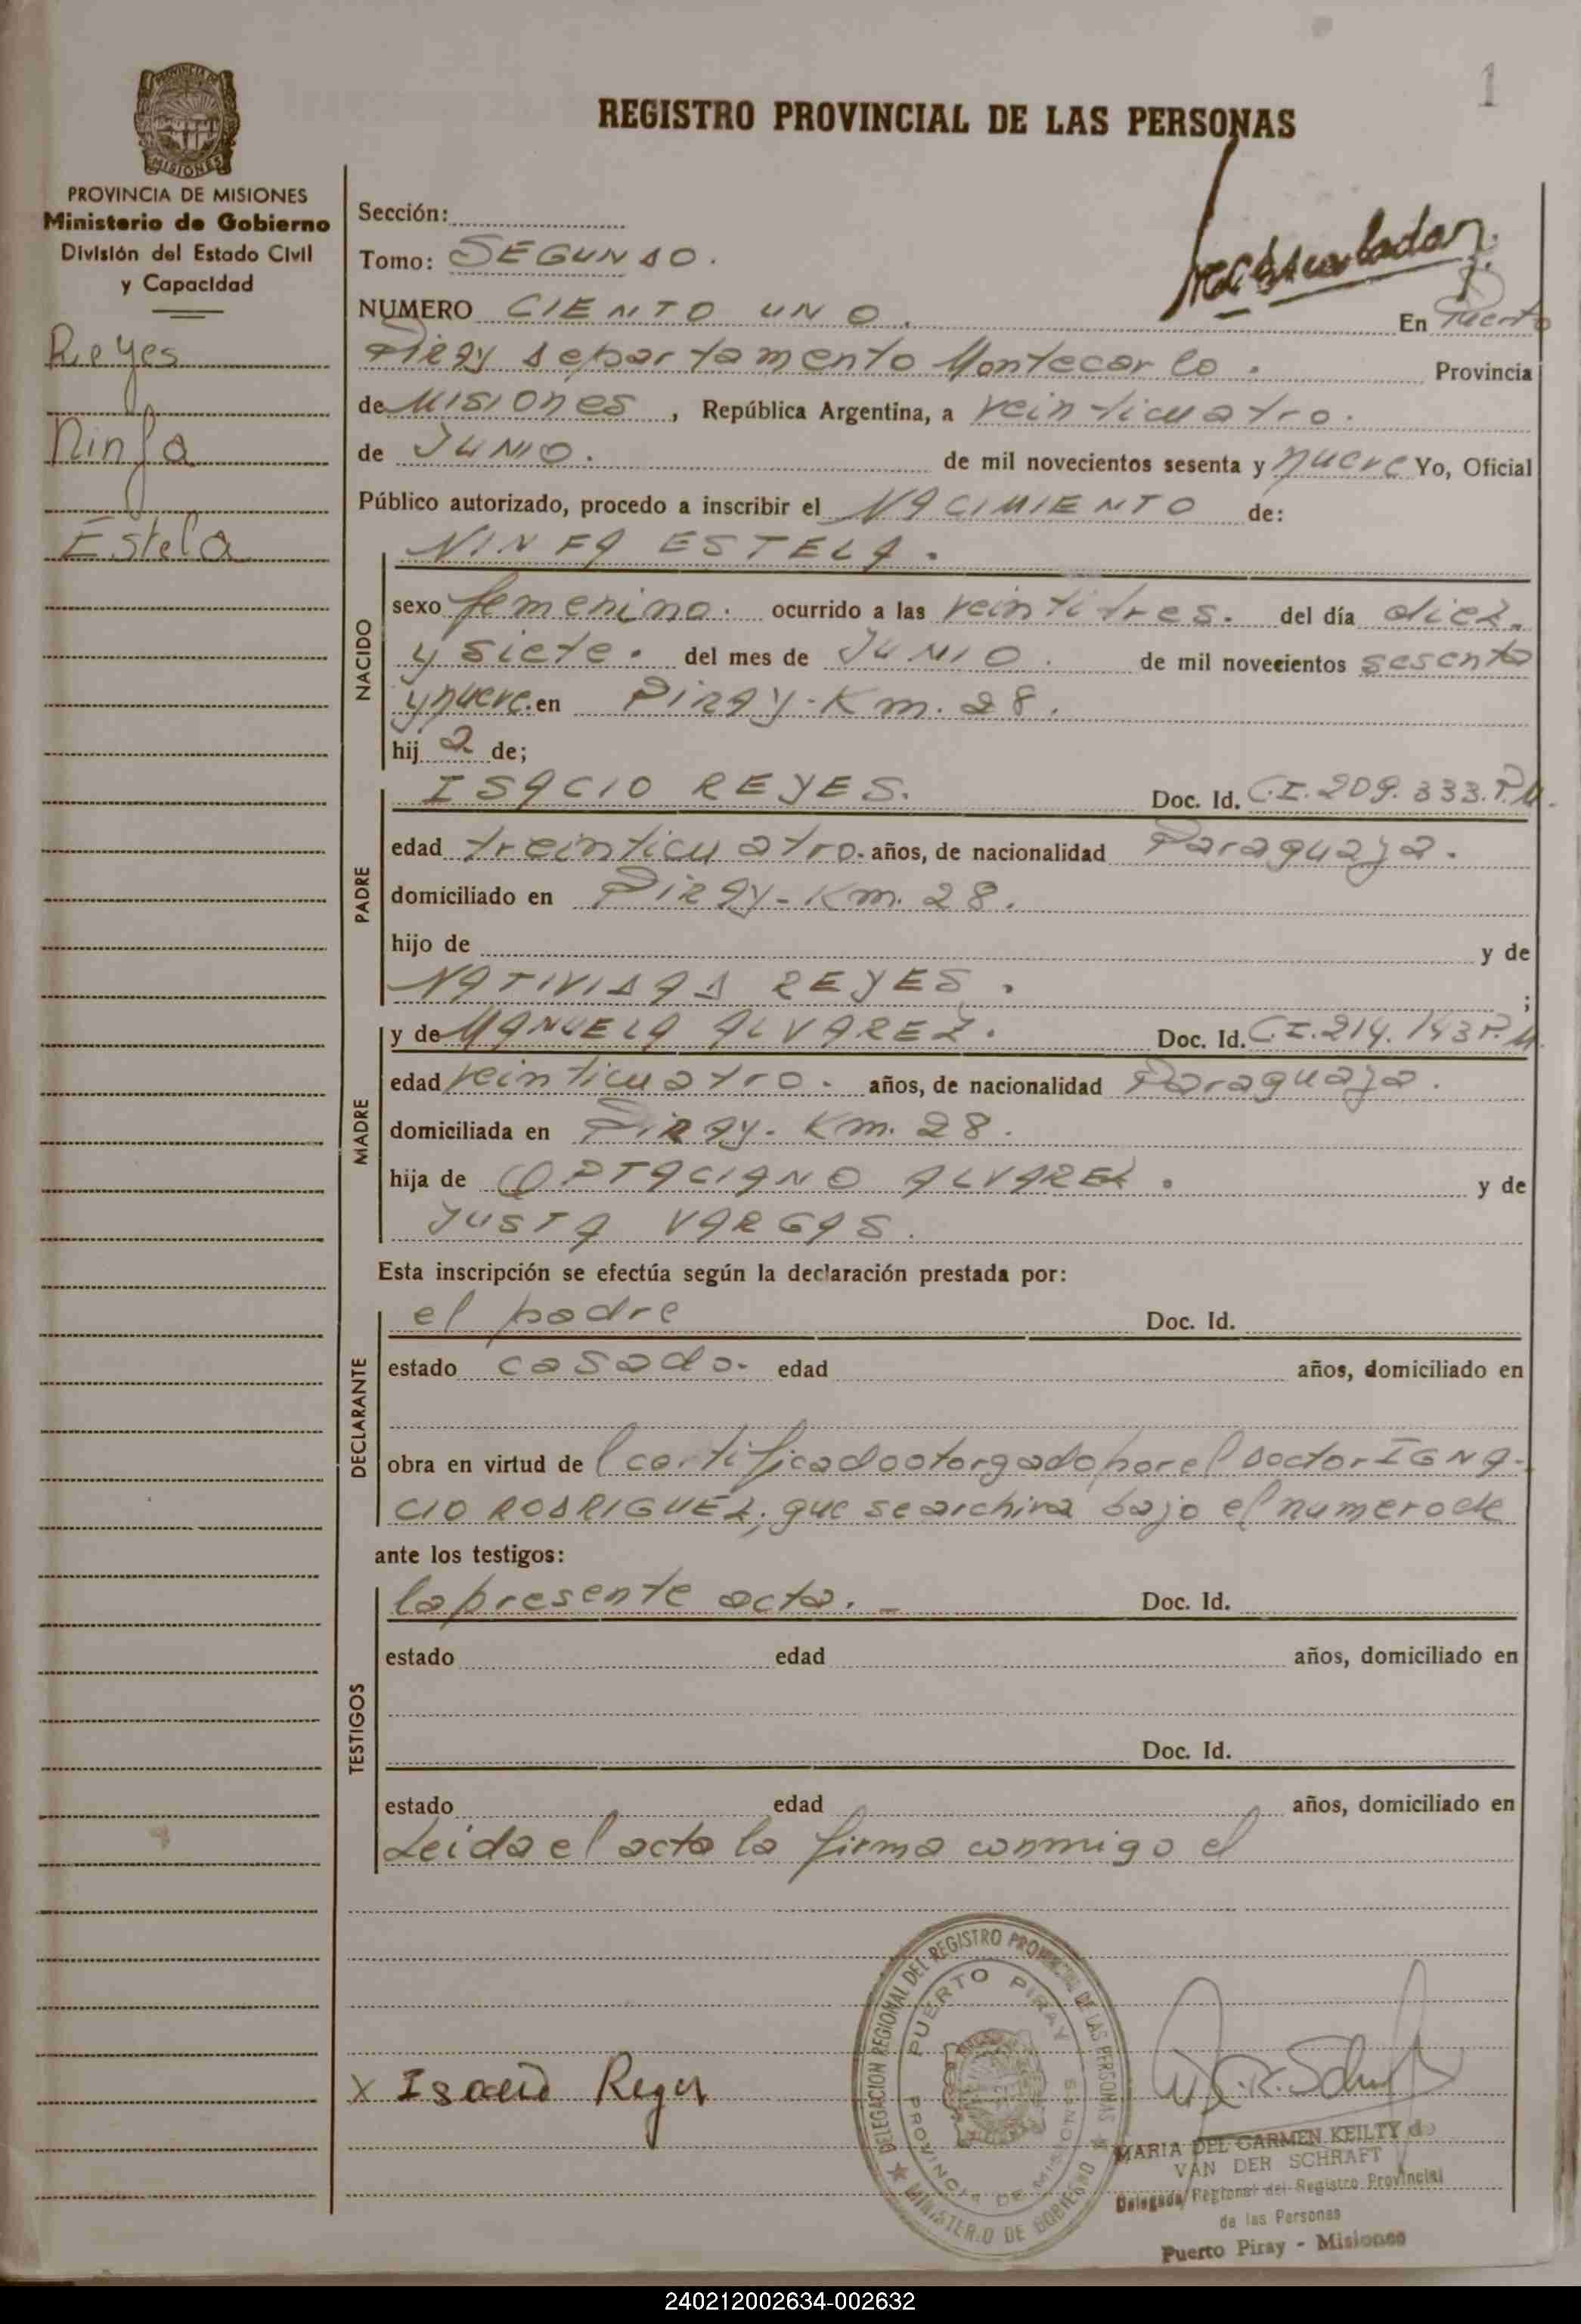 1
REGISTRO PROVINCIAL DE LAS PERSONAS
PROVINCIA DE MISIONES
Ministerio de Gobierno
División del Estado Civil
y Capacidad
Reyes
Ninfa
Estela
Sección:
Tomo: SEGUNDO.
NUMERO CIENTO UNO. En Puerto
PIRAY departamento Montecarlo. Provincia
de MISIONES, República Argentina, a veinticuatro.
de JUNIO. de mil novecientos sesenta y nueve Yo, Oficial
Público autorizado, procedo a inscribir el NACIMIENTO de:
NINFA ESTELA.
NACIDO
sexo femenino. ocurrido a las veintitres. del día diez.
y siete. del mes de JUNIO. de mil novecientos sesenta
y nueve. en PIRAY-Km. 28.
hij a de;
PADRE
ISACIO REYES. Doc. Id. C.I. 209.333.P.M.
edad treinticuatro. años, de nacionalidad Paraguaya.
domiciliado en PIRAY-Km. 28.
hijo de y de
NATIVIDAD REYES. ;
MADRE
y de MANUELA ALVAREZ. Doc. Id. C.I. 214.143 P.M.
edad veinticuatro. años, de nacionalidad Paraguaya.
domiciliada en PIRAY. Km. 28.
hija de OPTACIANO ALVAREZ. y de
JUSTA VARGAS.
Esta inscripción se efectúa según la declaración prestada por:
DECLARANTE
el padre Doc. Id.
estado casado. edad años, domiciliado en
obra en virtud de l certificado otorgado por el Doctor IGNA-
CIO RODRIGUEZ; que se archiva bajo el numero de
ante los testigos:
TESTIGOS
la presente acta. - Doc. Id.
estado edad años, domiciliado en
Doc. Id.
estado edad años, domiciliado en
Leida el acta la firma conmigo el
X Isacio Reyes
DELEGACION REGIONAL DEL REGISTRO PROVINCIAL DE LAS PERSONAS
MINISTERIO DE GOBIERNO
PUERTO PIRAY
PROVINCIA DE MISIONES
MARIA DEL CARMEN KEILTY de
VAN DER SCHRAFT
Delegada Regional del Registro Provincial
de las Personas
Puerto Piray - Misiones
240212002634-002632